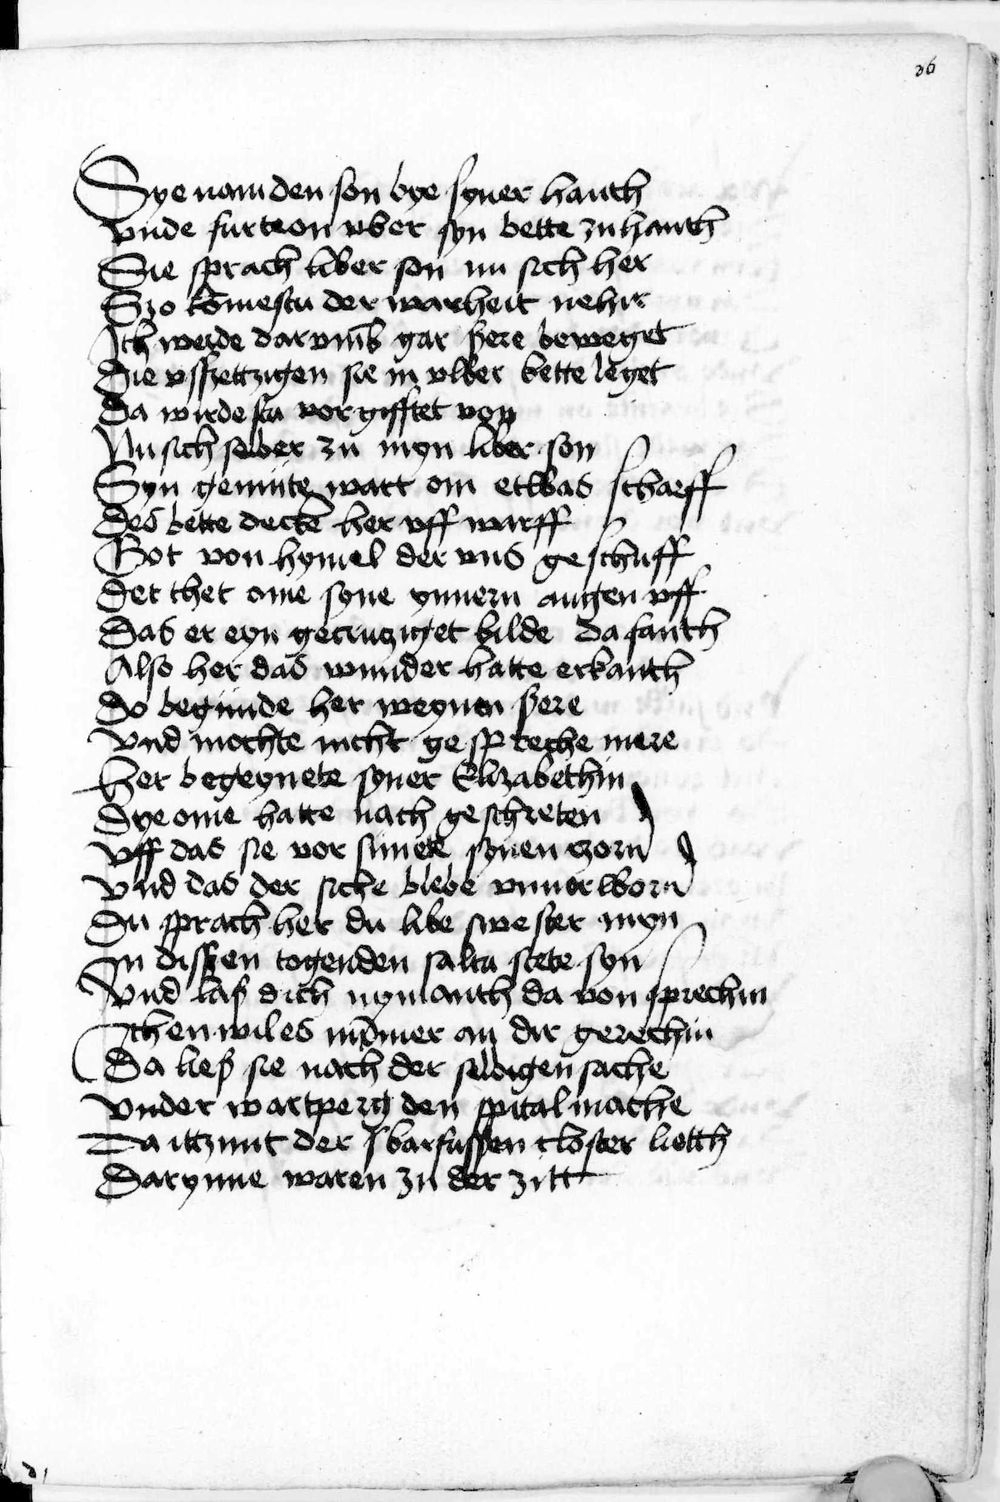 36
Sye nam den son bye syner hanth
vnde furte on vber syn bette zu hanth
Sie sprach liber son nu sich her
Szo kōmestu der warheit nehir
Ich werde darvmb gar sere beweget
Die vsszettzigen sie in vlber bette leget
Da wirdestu vorgifftet von
Nu sich selber zu myn liber son
Syn gemüte wart om etwas scharff
Des bette decke her vff warff
Got von hymel der vns geschuff
Det thet ome syne ynnern augen vff
Das er eyn gecruziget bilde da fanth
Also her das wunder hatte erkanth
Do begunde her weynen sere
vnd mochte nicht gespreche mere
Her begeynete syner Elizabethin
Dye ome hatte nach geschreten
vff das sie vor sunete synen zorn
vnd das der siche blebe vnuorlborn
Du sprach her du libe swester myn
In dissen togenden saltu stete syn
Vnd las dich nymanth da von sprechin
Ich en wil es nūmer an dir gerechin
Da lies sie nach der selbigen sache
vnder wartperg den spital mache
Da itzunt der barfussen closter lietth
Darynne waren zu der zitt